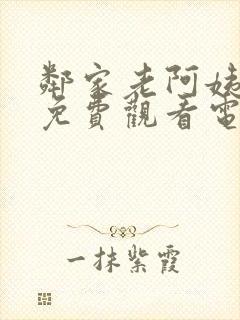 鄰家老阿姨
免費觀看電
一抹紫霞